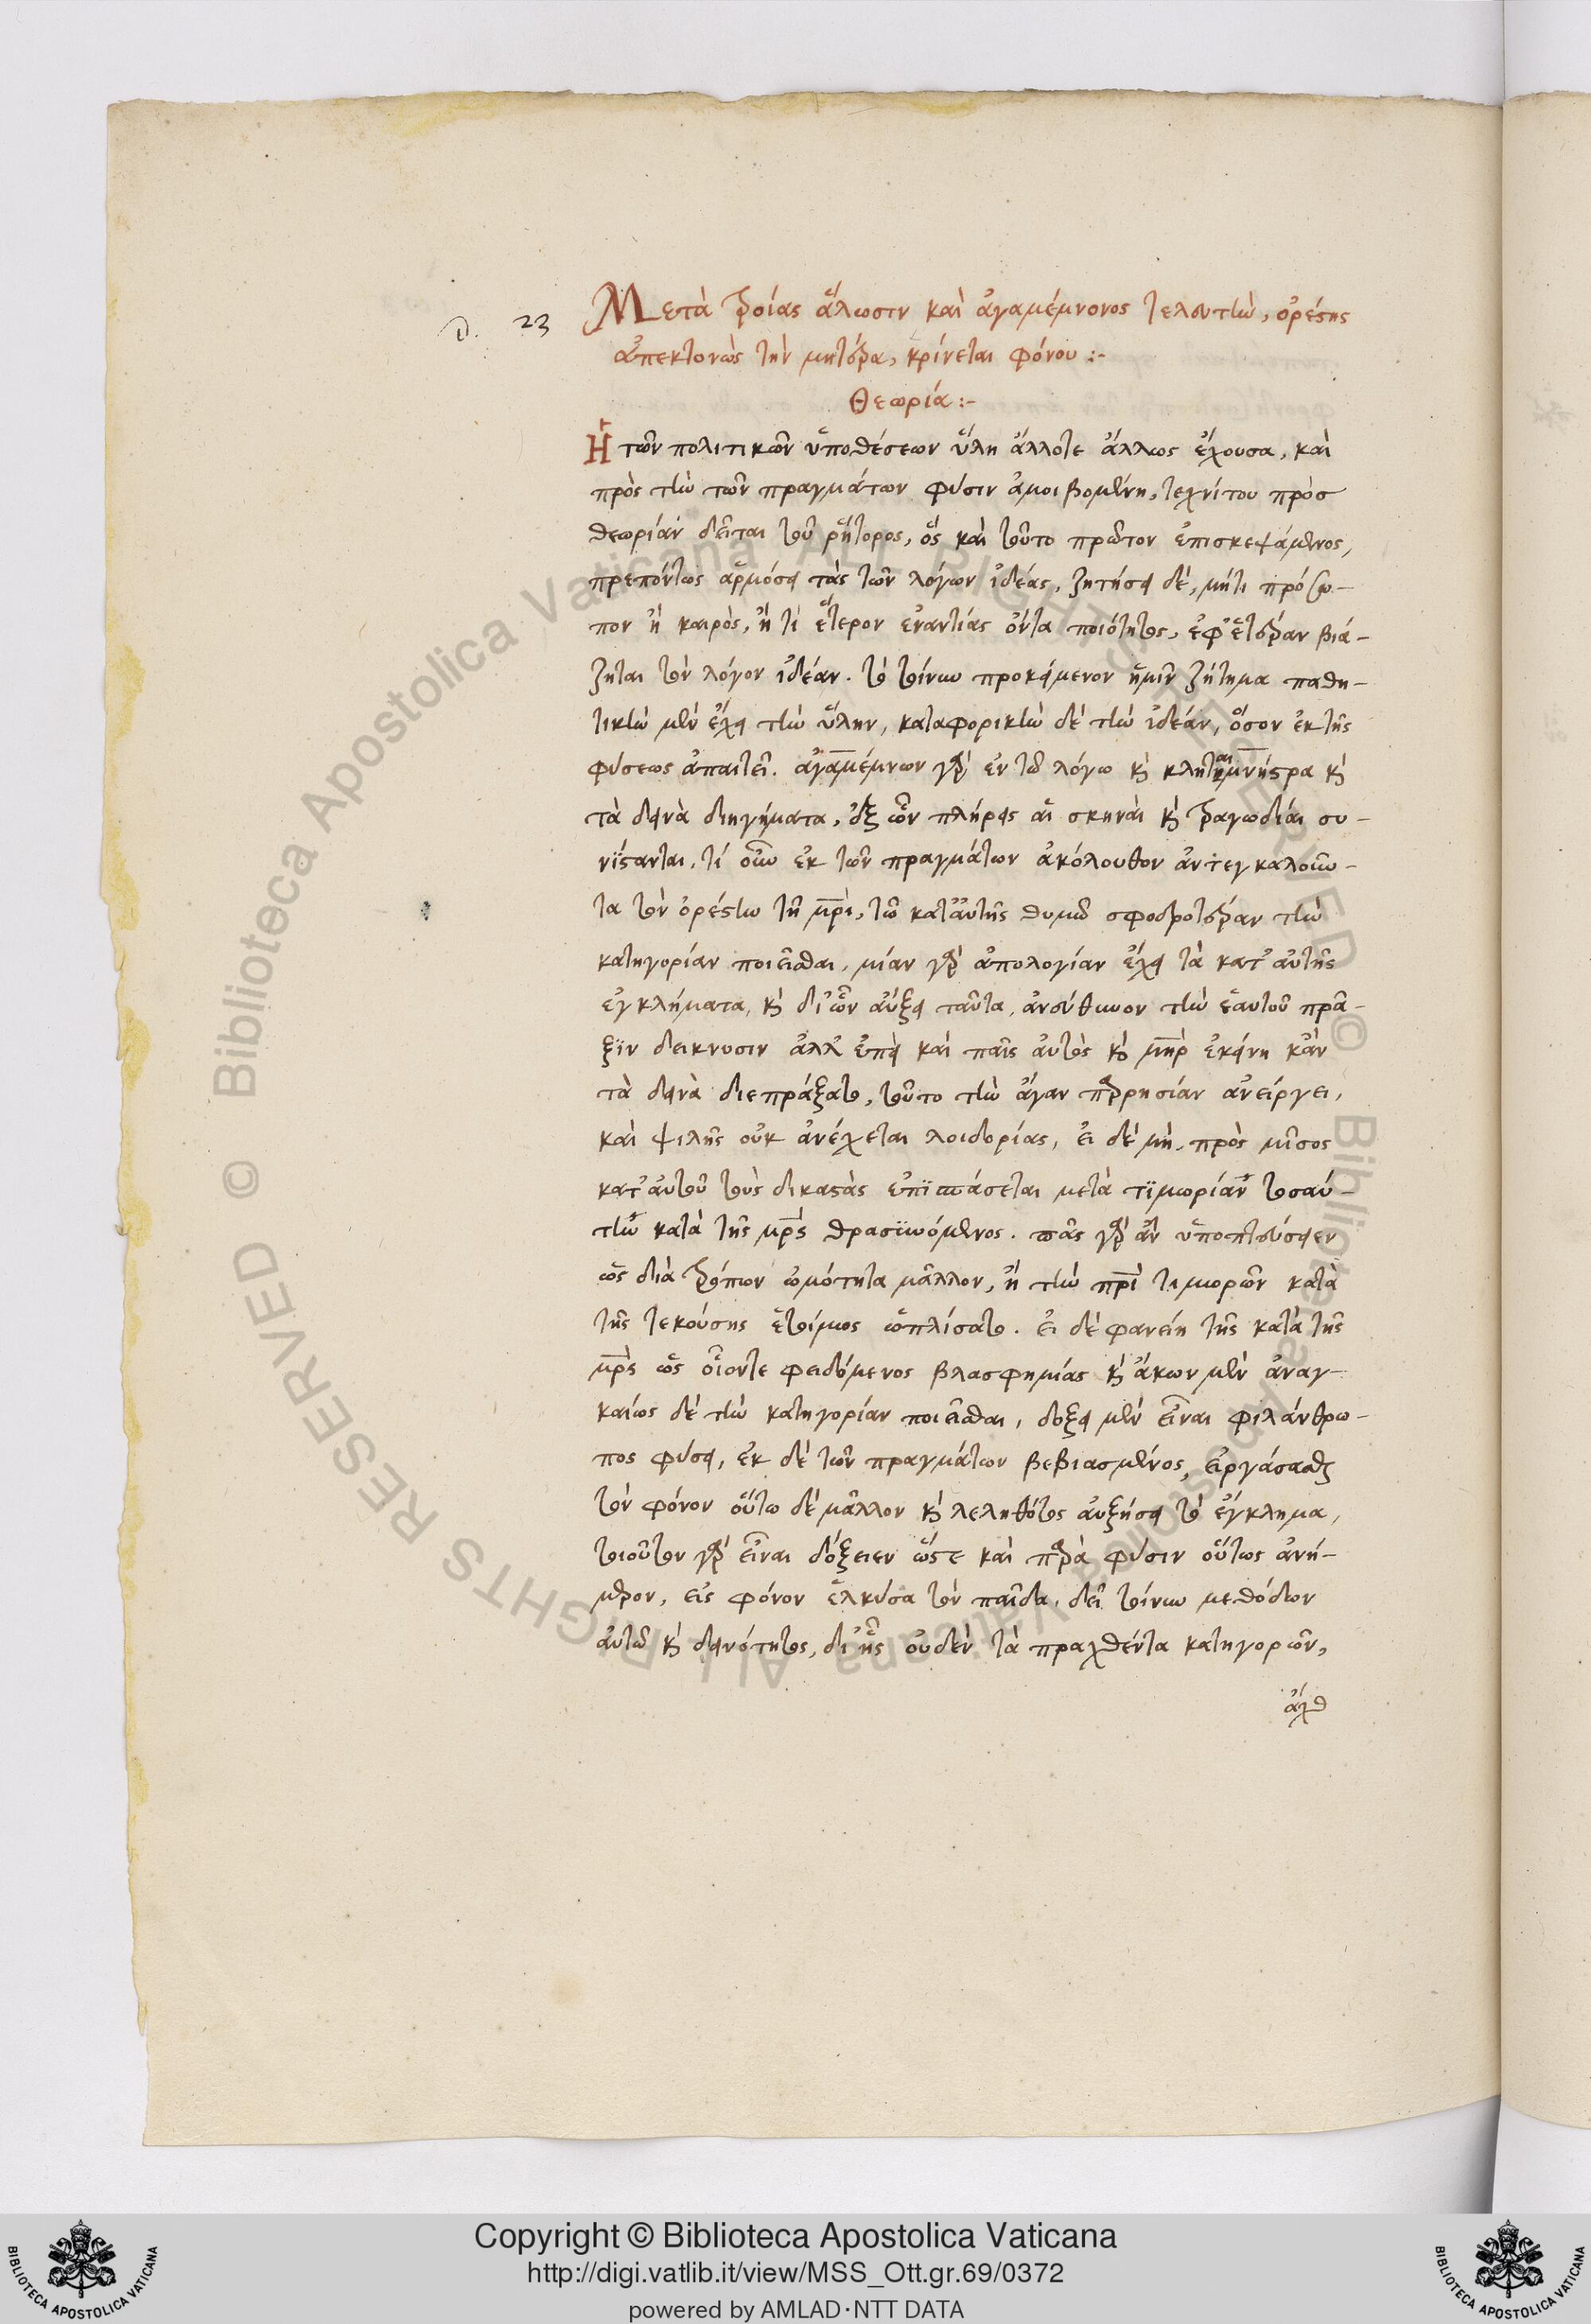 D. 23 Μετὰ Τροίας ἅλωσιν καὶ ἀγαμέμνονος τελευτὴν, ὀρέστης
ἀπεκτονὼς τὴν μητέρα, κρίνεται φόνου :-
Θεωρία :-
Ἡ τῶν πολιτικῶν ὑποθέσεων ὕλη ἄλλοτε ἄλλως ἔχουσα, καὶ
πρὸς τὴν τῶν πραγμάτων φύσιν ἀμοιβομένη, τεχνίτου πρὸσ
θεωρίαν δεῖται τοῦ ῥήτορος, ὃς καὶ τοῦτο πρῶτον ἐπισκεψάμενος,
πρεπόντως ἁρμόσει τὰς τῶν λόγων ἰδέας, ζητήσει δὲ, μήτι πρόσω-
πον ἢ καιρὸς, ἢ τὶ ἕτερον ἐναντίας ὄντα ποιότητος, ἐφ' ἑτέραν βιά-
ζηται τὸν λόγον ἰδέαν. τὸ τοίνυν προκείμενον ἡμῖν ζήτημα παθη-
τικὴν μὲν ἔχει τὴν ὕλην, καταφορικὴν δὲ τὴν ἰδέαν, ὅσον ἐκ τῆς
φύσεως ἀπαιτεῖ. ἀγαμέμνων γὰρ ἐν τῶ λόγω καὶ κλυταιμνήστρα καὶ
τὰ δεινὰ διηγήματα, ἐξ ὧν πλήρεις αἱ σκηναὶ καὶ τραγωδίαι συ-
νίστανται. τί οὖν ἐκ τῶν πραγμάτων ἀκόλουθον ἀντεγκαλοῦν-
τα τὸν ὀρέστην τῆ μητρὶ, τῶ κατ' αὐτῆς θυμῶ σφοδροτέραν τὴν
κατηγορίαν ποιεῖσθαι. μίαν γὰρ ἀπολογίαν ἔχει τὰ κατ' αὐτῆς
ἐγκλήματα, καὶ δι' ὧν αὔξει ταῦτα, ἀνεύθυνον τὴν ἑαυτοῦ πρᾶ-
ξιν δεικνυσιν ἀλλ' ἐπεὶ καὶ παῖς αὐτὸς καὶ μήτηρ ἐκείνη κἂν
τὰ δεινὰ διεπράξατο, τοῦτο τὴν ἄγαν παρρησίαν ἀνείργει,
καὶ ψιλῆς οὐκ ἀνέχεται λοιδορίας, εἰ δὲ μὴ, πρὸς μῖσος
κατ' αὐτοῦ τοὺς δικαστὰς ἐπισπάσεται μετὰ τιμωρίαν τοσαύ-
την κατὰ τῆς μητρὸς θρασυνόμενος. πᾶς γὰρ ἂν ὑποπτεύσειεν
ὡς διὰ τρόπων ὠμότητα μᾶλλον, ἢ τὴν πατρὶ τιμωρῶν κατὰ
τῆς τεκούσης ἑτοίμως ὡπλίσατο. εἰ δὲ φανείη τῆς κατὰ τῆς
μητρὸς ὡς οἷόντε φειδόμενος βλασφημίας καὶ ἄκων μὲν ἀναγ-
καίως δὲ τὴν κατηγορίαν ποιεῖσθαι, δοξει μὲν εἶναι φιλάνθρω-
πος φύσει, ἐκ δὲ τῶν πραγμάτων βεβιασμένος, εἰργάσασθαι
τὸν φόνον οὕτω δὲ μᾶλλον καὶ λεληθότος αὐξήσει τὸ ἔγκλημα,
τοιοῦτον γὰρ εἶναι δόξειεν ὥστε καὶ παρὰ φύσιν οὕτως ἀνή-
μερον, εἰς φόνον ἑλκύσαι τὸν παῖδα. δεῖ τοίνυν μεθόδων
αὐτῶ καὶ δεινότητος, δι' ἧς οὐδὲν τὰ πραχθέντα κατηγορῶν,
ἀχθ
© Biblioteca Apostolica Vaticana ALL RIGHTS RESERVED © Biblioteca Apostolica Vaticana ALL RIGHTS RESERVED
Copyright © Biblioteca Apostolica Vaticana
http://digi.vatlib.it/view/MSS_Ott.gr.69/0372
powered by AMLAD·NTT DATA
BIBLIOTECA APOSTOLICA VATICANA
BIBLIOTECA APOSTOLICA VATICANA